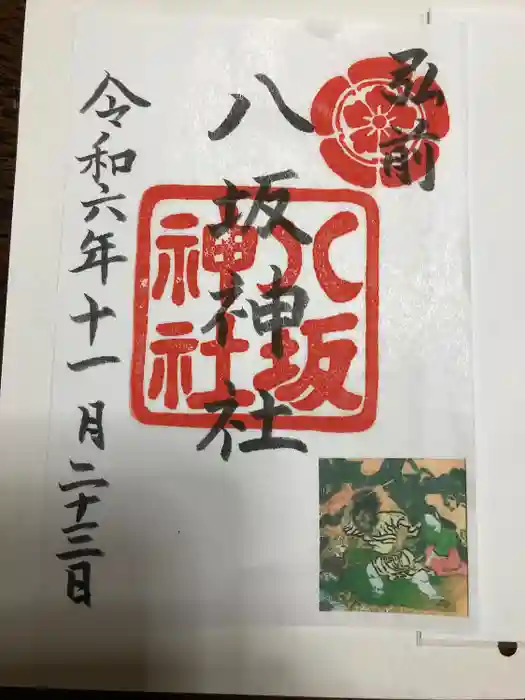 弘前
八坂神社
八坂
神社
令和六年十一月二十三日